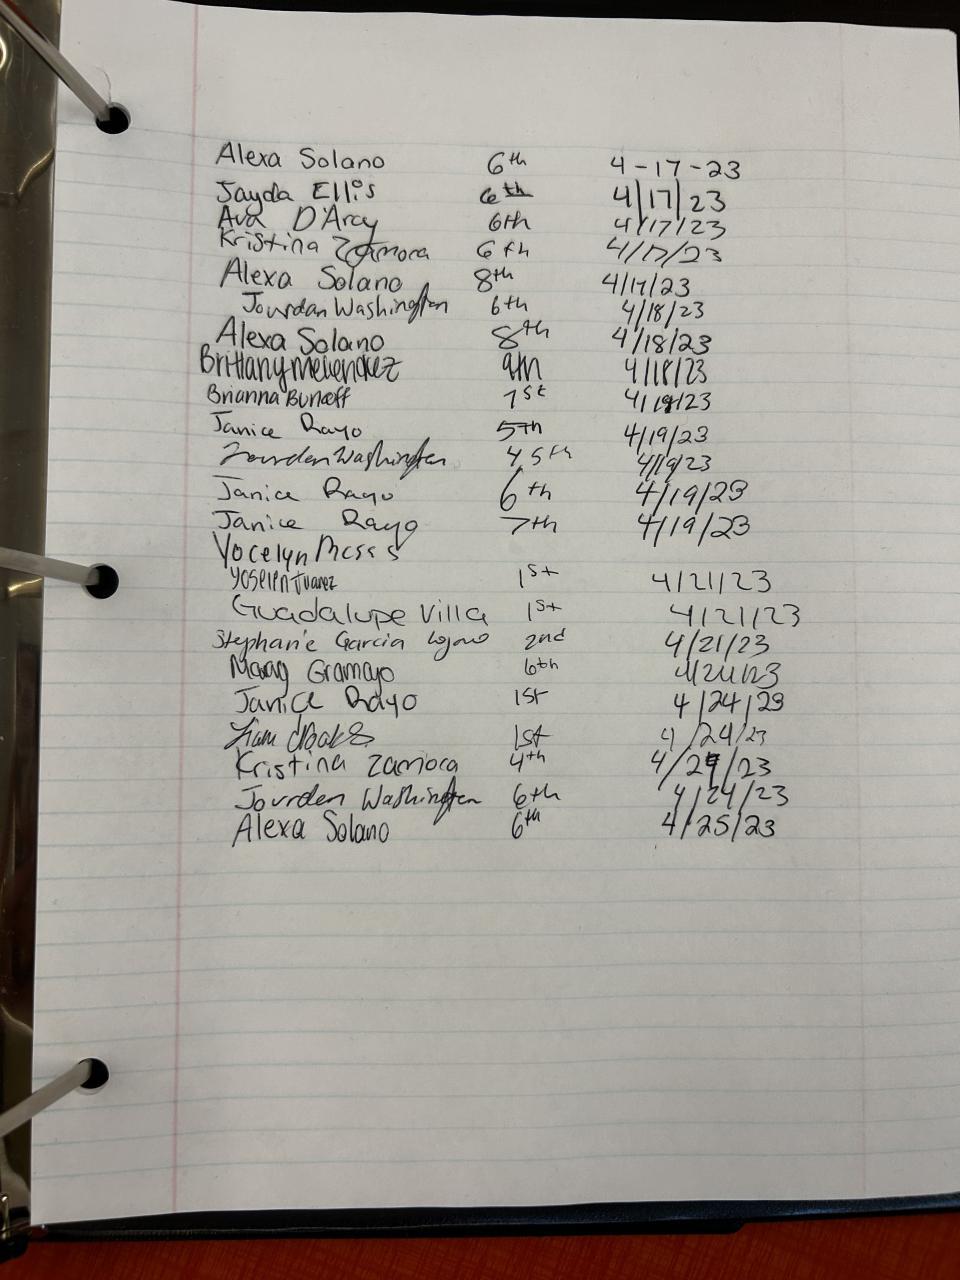 Alexa Solano 6th 4-17-23
Jayda Ellis 6th 4/17/23
Ava D'Arcy 6th 4/17/23
Kristina Zamora 6th 4/17/23
Alexa Solano 8th 4/17/23
Jourdan Washington 6th 4/18/23
Alexa Solano 8th 4/18/23
Brittany Melendez 9th 4/18/23
Brianna 1st 4/19/23
Janice Rayo 5th 4/19/23
Jourden Washington 4,5th 4/19/23
Janice Rayo 6th 4/19/23
Janice Rayo 7th 4/19/23
Yocelyn
Yoselin Juarez 1st 4/21/23
Guadalupe Villa 1st 4/21/23
Stephanie Garcia 2nd 4/21/23
Gramayo 6th 4/24/23
Janice Rayo 1st 4/24/23
1st 4/24/23
Kristina Zamora 4th 4/24/23
Jourden Washington 6th 4/24/23
Alexa Solano 6th 4/25/23